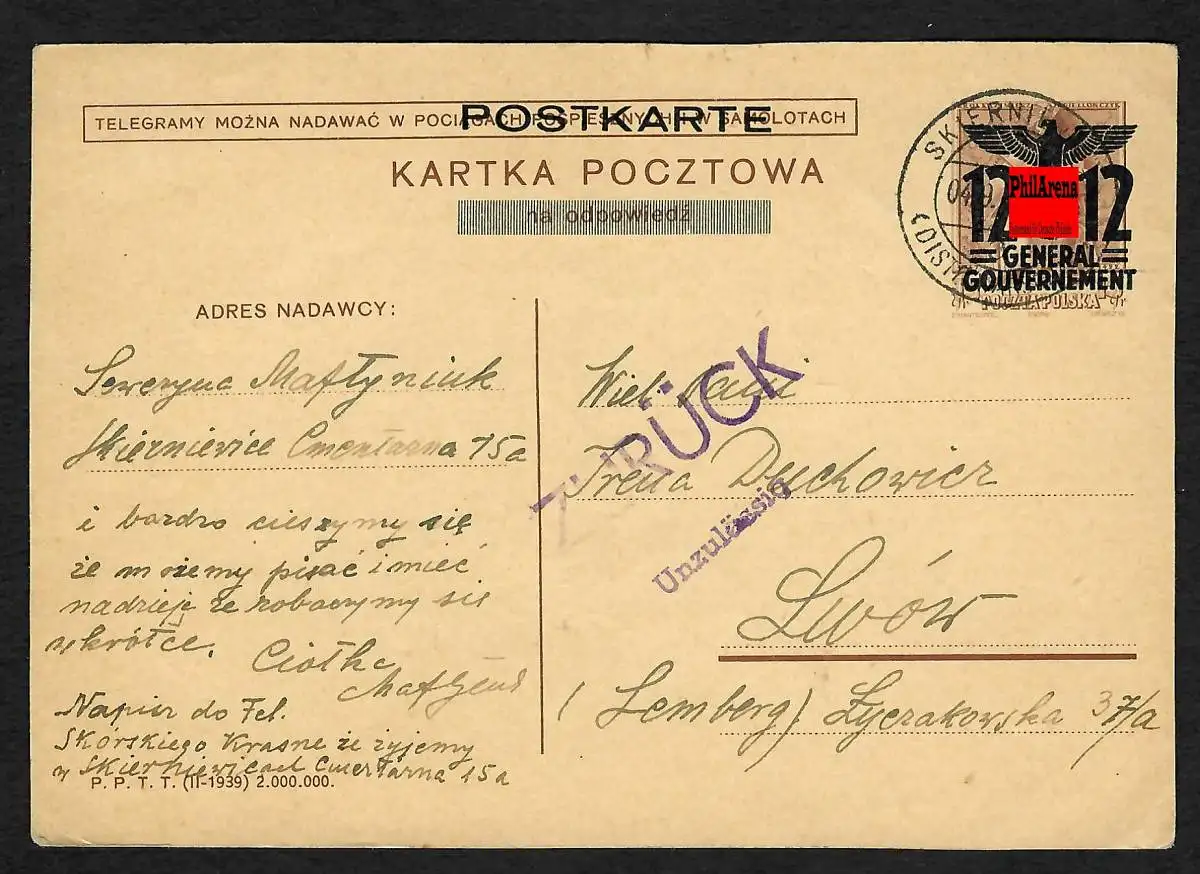 POSTKARTE
TELEGRAMY MOŻNA NADAWAĆ W POCIĄGACH POSPIESZNYCH I W SAMOLOTACH
KARTKA POCZTOWA
na odpowiedź
SKIERNI
(DIST
04.9.
12 12
PhilArena
GENERAL
GOUVERNEMENT
POCZTA POLSKA
ADRES NADAWCY:
Seweryna Maftyniuk
Skierniewice Cmentarna 15a
i bardzo cieszymy się
że możemy pisać i mieć
nadzieję że zobaczymy się
wkrótce.
Ciotka
Napisz do Fel.
Skórskiego Krasne że żyjemy
w Skierniewicach Cmentarna 15a
P. P. T. T. (II-1939) 2.000.000.
ZURÜCK
Unzulässig
Wiel. Pani
Irena Duchowicz
Lwów
(Lemberg) Łyczakowska 37/a